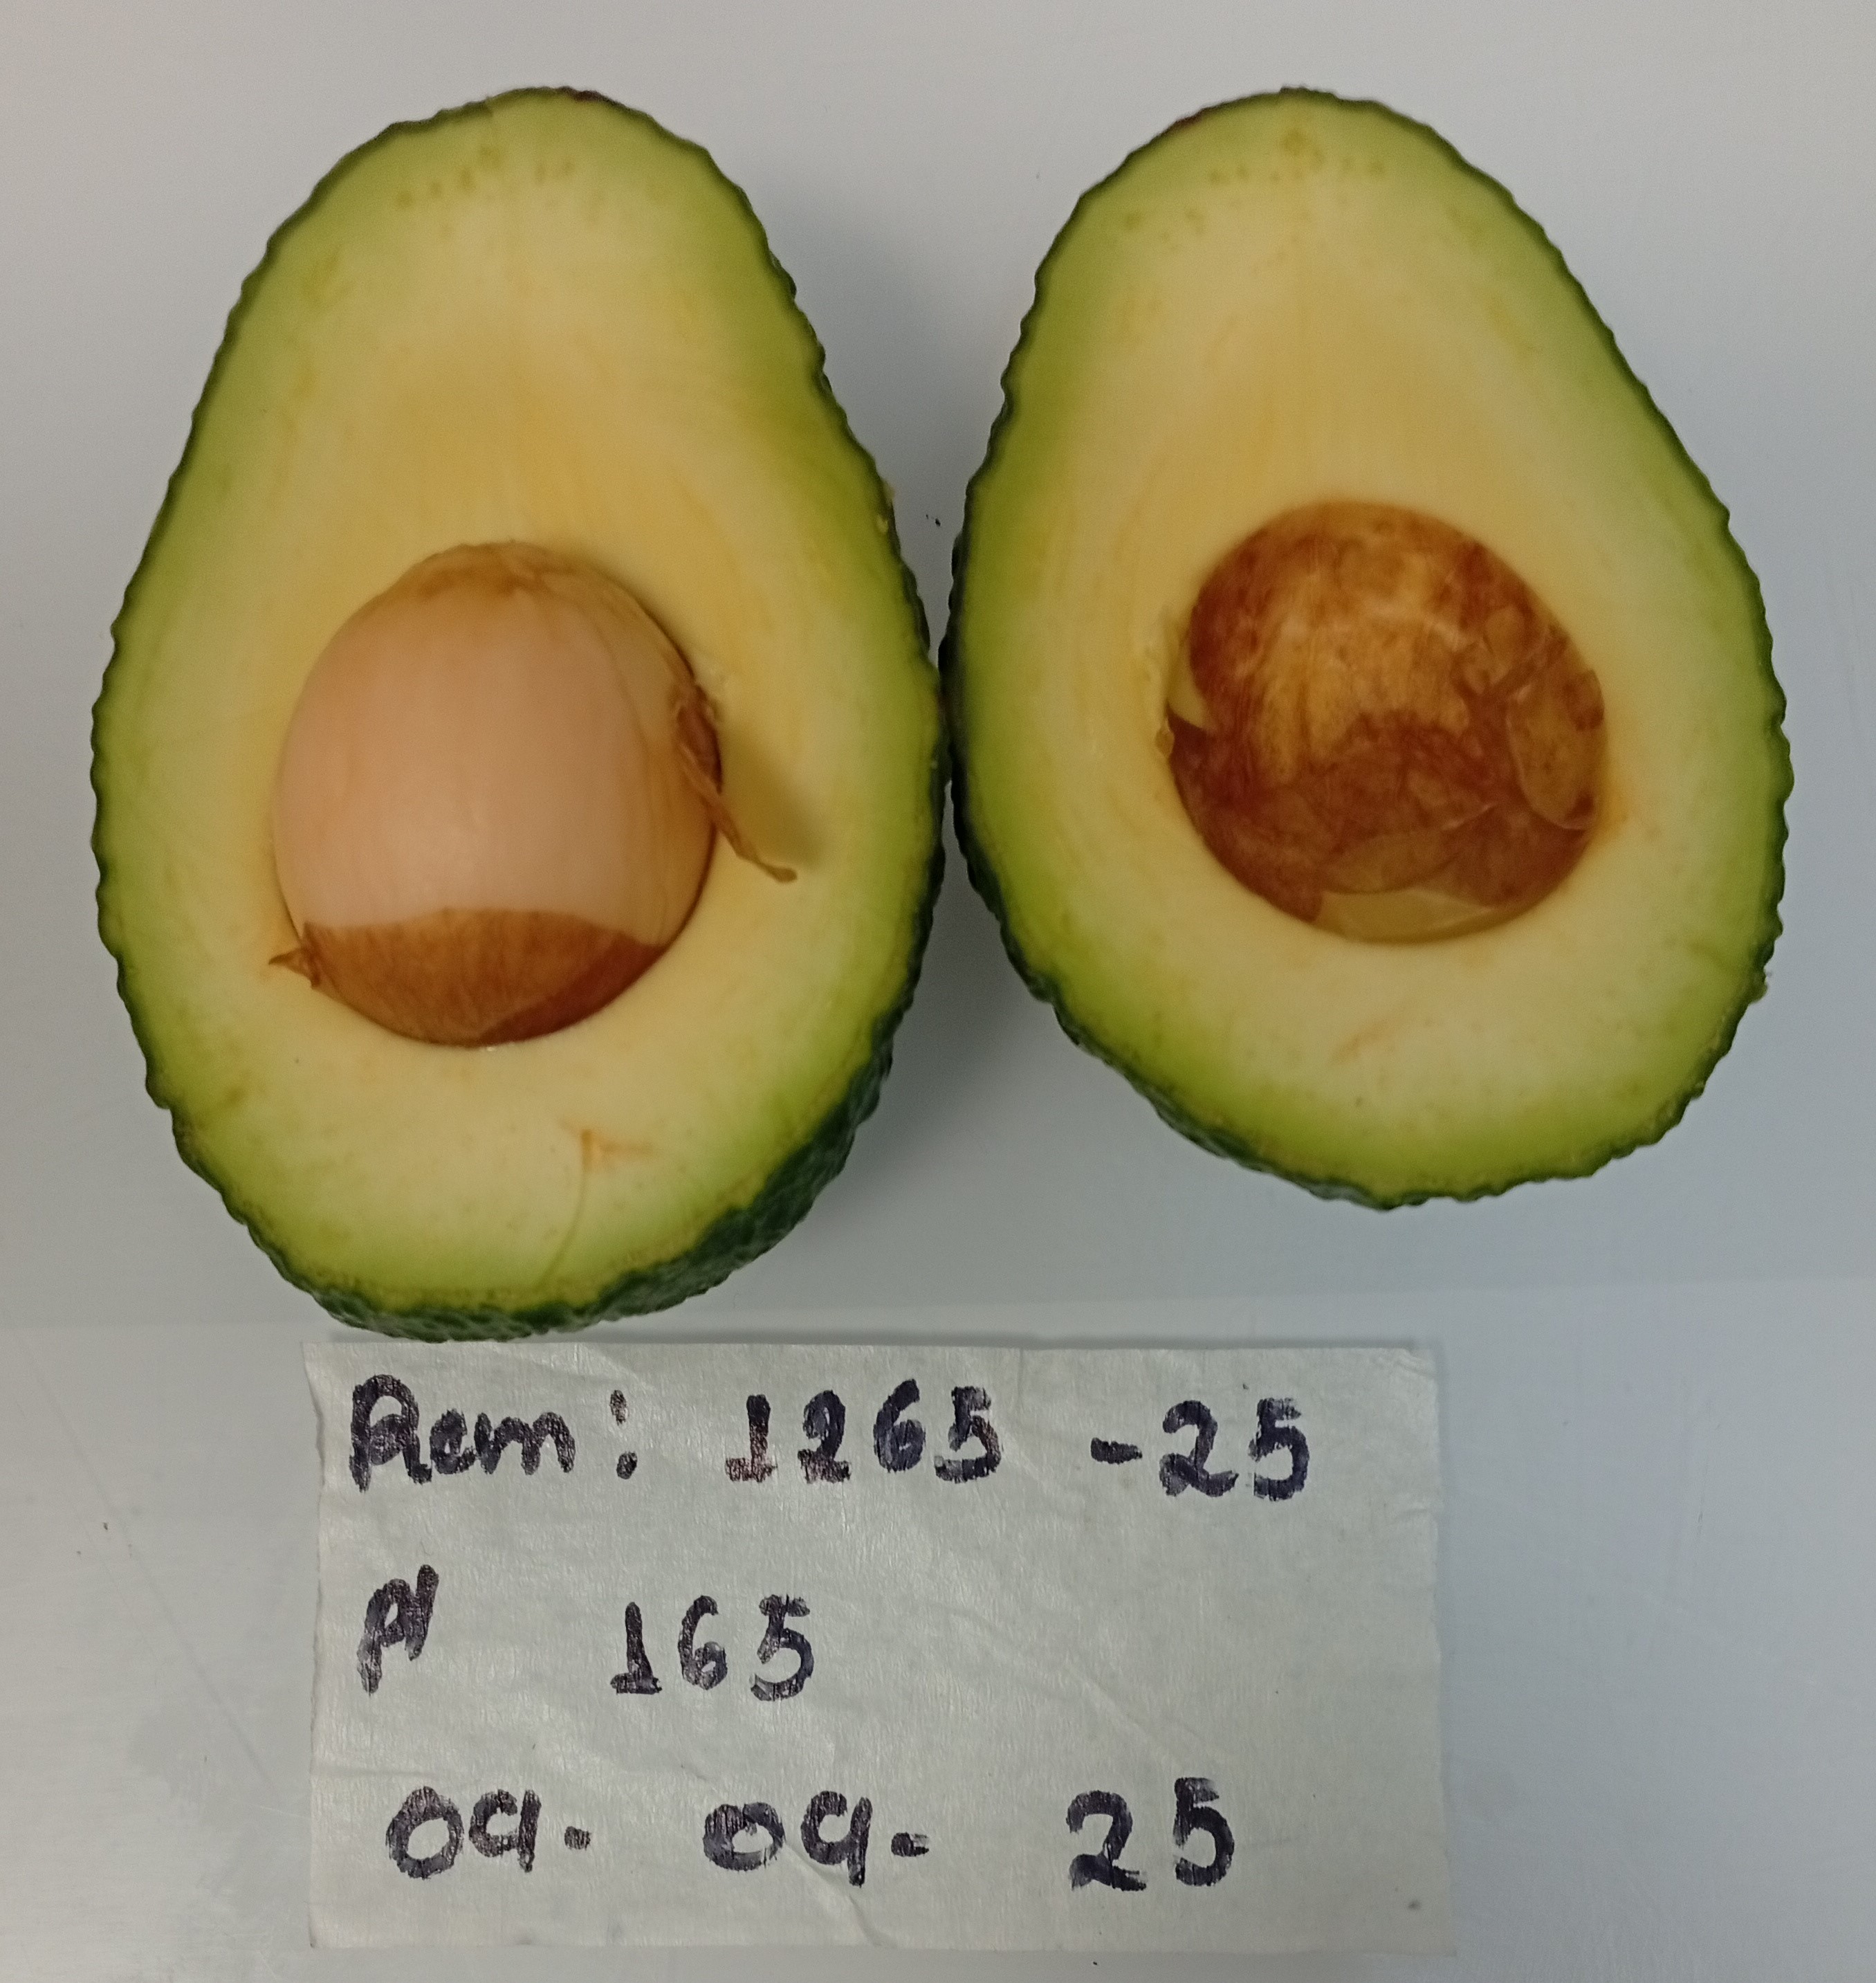 Rem: 1265 -25
P/ 165
09. 09. 25